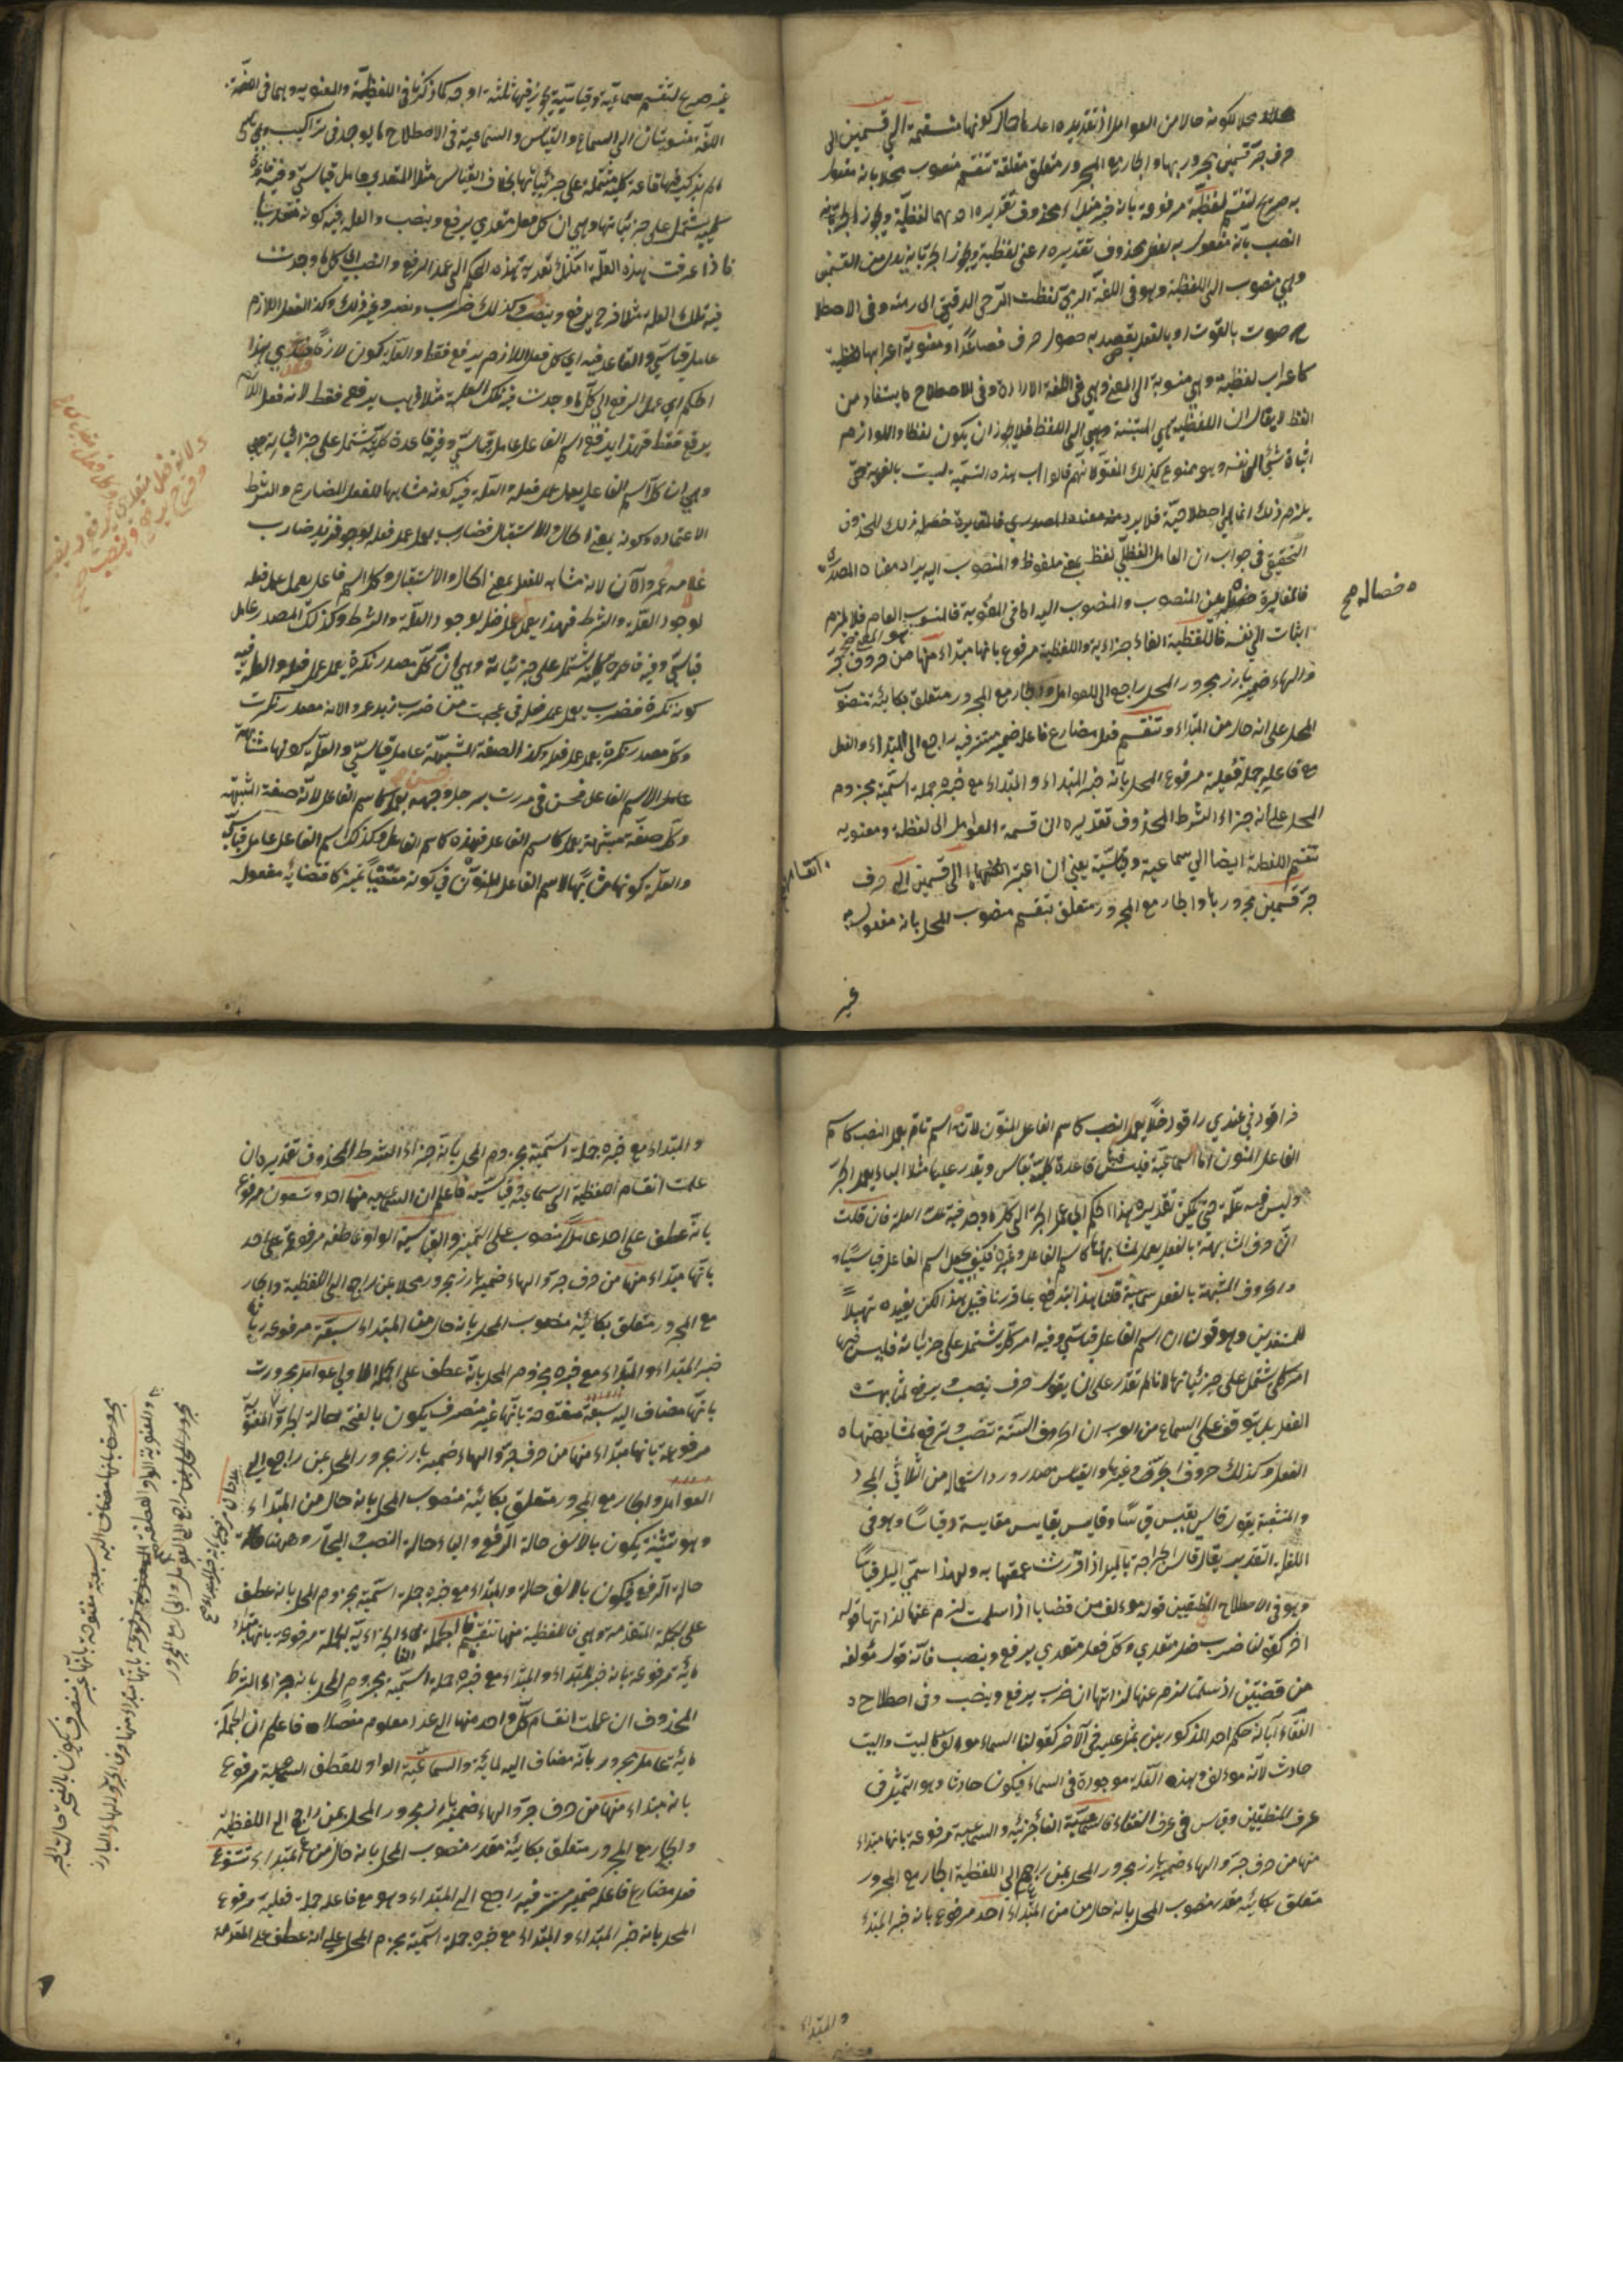 محلا لكونه حالا من العوامل اذ تقديره اعلم حال كونها منقسمة الى قسمين الى
حرف جر قسمين مجرور بها والجار مع المجرور متعلق متعلقة تنقسم منصوب محلا بانه مفعول
به صريح لتنقسم لفظية مرفوعة بانه خبر مبتداء محذوف تقديره احدهما لفظية ويجوز
النصب بانه مفعول به لفعل محذوف تقديره اعنى لفظية ويجوز الجر بانه بدل من القسمين
وهي منصوب الى اللفظية وهو في اللغة الرمي لفظت الرحى الدقيق اى رمته وفى الاصطلا
ح صوت بالقوت او بالفعل يقصد به حصول حرف فصاعدًا او معنوية اعرابها لفظية
كاعراب لفظية وهي منسوبة الى المعنى وهي في اللغة الارادة وفى الاصطلاح ما يستفاد من
اللفظ لا يقال ان اللفظية هي المثبتة وهي الى اللفظ فلا يجوز ان يكون لفظا واللوازم
اثبات شئ الى نفسه وهو ممنوع كذلك المعنوى لانهم قالوا ان هذه التسمية ليست بالغوية حتى
يلزم ذلك انما هي اصطلاحية فلا يرد منه معناه المصدري فالمغايرة حصلت ذلك المحذور
التحقيق في جواب ان العامل اللفظي لفظ بمعنى ملفوظ والمنسوب اليه يراد معناه المصدرى
فالمغايرة بين المنصوب والمنصوب اليه اما في المعنوية فالمنسوب العام فلا يلزم
ه خصاله صح
اثبات الى نفسه فاللفظية الفاء جزائية واللفظية مرفوع بانها مبتداء منها من حروف جر
والهاء ضمير بارز مجرور المحل راجع الى العوامل والجار مع المجرور متعلق بكائنة منصوب
المحل على انه حال من المبتداء وتنقسم فعل مضارع فاعله ضمير مستتر فيه راجع الى المبتداء والفعل
مع فاعله جملة فعلية مرفوع المحل بانه خبر المبتداء والمبتداء مع خبره جملة اسمية مجزوم
المحل على انه جزاء الشرط المحذوف تقديره ان قسمة العوامل الى لفظية ومعنوية
تنقسم اللفظية ايضا الى سماعية وقياسية يعنى ان اعتبر انقسامها الى قسمين الى حرف
جر قسمين مجرور بها والجار مع المجرور متعلق بتنقسم منصوب المحل بانه مفعول به
غير
غير صريح لتنقسم سماعية وقياسية يجوز فيها ثلثة اوجه كما ذكرنا في اللفظية والمعنوية وهما في
اللغة منسوبتان الى السماع والقياس والسماعية في الاصطلاح ما يوجد في تراكيب
لم يذكر فيها قاعدة كلية مشتملة على جزئياتها بخلاف القياس مثلا المتعدي عامل قياسي وفيه قاعدة
كلية يشتمل على جزئياتها وهي ان كل فعل متعدي يرفع وينصب والعلة فيه كونه متعديا
فاذا عرفت هذه العلة امكنك تعدية هذه الحكم الى عمل الرفع والنصب الى كل ما وجدت
فيه تلك العلة مثلا فرح يرفع وينصب وكذلك ضرب ونصر وغير ذلك وكذا الفعل اللازم
عامل قياسي والقاعدة فيه اي كل فعل اللازم يرفع فقط والعلة كون لازما فتعدي هذا
الحكم اي عمل الرفع الى كل ما وجدت فيه تلك العلة مثلا ذهب يرفع فقط لانه فعل اللازم
يرفع فقط فهذا يرفع اسم الفاعل عامل قياسي وفيه قاعدة كلية يشتمل على جزئياته
وهي ان كل اسم الفاعل يعمل عمل فعله والعلة فيه كونه مشابها للفعل المضارع والشرط
الاعتماد وكونه بمعنى الحال والاستقبال فضارب يعمل عمل فعله لوجود زيد ضارب
غلامه عمرو الآن لانه مشابه للفعل بمعنى الحال والاستقبال وكل اسم فاعل يعمل عمل فعله
لوجود العلة والشرط فهذا يعمل عمل فعل لوجود العلة والشرط وكذلك المصدر عامل
قياسي وفيه قاعدة كلية يشتمل على جزئياته وهي ان كل مصدر نكرة يعمل عمل فعله والعلة فيه
كونه نكرة فضرب يعمل عمل فعله في عجبت من ضرب زيد عمروا لانه مصدر نكرت
وكل مصدر نكرة يعمل عمل فعله وكذا الصفة المشبهة عامل قياسي والعلة كونها مشابهة
عامل الاسم الفاعل فحسن في مررت برجل وجهه يعمل كاسم الفاعل لانه صفة المشبهة
وكل صفة مشبهة يعمل كاسم الفاعل فهذه كاسم الفاعل وكذلك اسم الفاعل عامل قياسي
والعلة كونها مشابها لاسم الفاعل المنون في كونه مقتضيا تمييزا كاقتضائه مفعول
فراقود في عندي راقود خلا يعمل النصب كاسم الفاعل المنون لانه اسم تام يعمل النصب كاسم
الفاعل المنون اما السماعية فليس فيها قاعدة كلية تقاس ويقدر عليها مثلا الباء يعمل الجر
وليس فيه علة حتى يمكن تقديره بهذا الحكم الى عمل الجر الى كل ما وجد فيه تلك العلة فان قلت
ان حرف المشابهة بالفعل يعمل لمشابهتها كاسم الفاعل وغيره فكيف يجعل اسم الفاعل قياسيا
والحروف المشبهة بالفعل سماعية قلنا هذا اندفع بما قررنا قبيل هذا لكن نعيده تسهيلاً
للمبتدئين وهو قولنا ان اسم الفاعل قياسي وفيه امر كلي يشتمل على جزئياته فليس فيها
امر كلي يشتمل على جزئياتها لانا لم نقدر على ان يقول حرف ينصب ويرفع لمشابهته
الفعل بل يتوقف على السماع من العرب ان الحروف الستة تنصب وترفع لمشابهتها
الفعل وكذلك حروف الجر وغيرها والقياس مصدر ورد استعماله من الثلاثي المجرد
والمنشعبة يقول قاس يقيس قياسا وقايس يقايس مقايسة وقياسا وهو في
اللغة التقدير يقال قاس الجراحة بالميل اذا قدرت عمقها به ولهذا سمي الميل قياسا
وهو في الاصطلاح المنطقيين قول مؤلف من قضايا اذا سلمت لزم عنها لذاتها قول
اخر كقولنا ضرب فعل متعدي وكل فعل متعدي يرفع وينصب فانه قول مؤلفة
من قضيتين اذ سلمتا لزم عنها لذاتها ان ضرب يرفع وينصب وفى اصطلاح
الفقهاء ابانة حكم احد المذكورين بمثل علته في الاخر كقولنا السماء مؤلف كالبيت والبيت
حادث لانه مؤلف وهذه العلة موجودة في السماء فيكون حادثا وهو التمثيل في
عرف المنطقيين وقياس في عرف الفقهاء فالسماعية الفاء جزئية والسماعية مرفوعة بانها مبتداء
منها من حرف جر والهاء ضمير بارز مجرور المحل بمن راجع الى اللفظية الجار مع المجرور
متعلق بكائنة مقدر منصوب المحل بانه حال من من المبتداء احد مرفوع بانه خبر المبتدء
والمبتداء
والمبتداء مع خبره جملة اسمية مجزوم المحل بانه جزاء الشرط المحذوف تقديره ان
علمت انقسام اللفظية الى سماعية وقياسية فاعلم ان السماعية منها احد وتسعون مرفوع
بانه عطف على احد عاملا منصوب على التمييز والقياسية الواو عاطفة مرفوعة على احد
بانها مبتداء منها من حرف جر والهاء ضمير بارز مجرور محلا بمن راجع الى اللفظية والجار
مع المجرور متعلق بكائنة منصوب المحل بانه حال من المبتداء سبعة مرفوعة بانها
خبر المبتداء والمبتداء مع خبره مجزوم المحل بانه عطف على الجملة الاولى عوامل مجرورت
بانها مضاف اليه سبعة مفتوحة بانها غير منصرف يكون بالفتحة حالة الجر والمعنوية
مرفوعة بانها مبتداء منها من حرف جر والهاء ضمير بارز مجرور المحل بمن راجع الى
العوامل والجار مع المجرور متعلق بكائنة منصوب المحل بانه حال من المبتداء
وهو تثنية يكون بالالف حالة الرفع والياء حالة النصب والجر وههنا
حالة الرفع فيكون بالالف حالة والمبتداء مع خبره جملة اسمية مجزوم المحل بانه عطف
على الجملة المتقدمة وهي فاللفظية منها تنقسم فالجملة الفاء الجزائية الجملة مرفوعة بانها مبتداء
مائة مرفوعة بانه خبر المبتداء والمبتداء مع خبره جملة اسمية مجزوم المحل بانه جزاء الشرط
المحذوف ان علمت انقسام كل واحد منها الى عدد معلوم مفصلا فاعلم ان الجملة
مائة عامل مجرور بانه مضاف اليه لمائة والسماعية الواو للعطف السماعية مرفوع
بانه مبتداء منها من حرف جر والهاء ضمير بارز مجرور المحل بمن راجع الى اللفظية
والجار مع المجرور متعلق بكائنة مقدر منصوب المحل بانه حال من المبتداء تتنوع
فعل مضارع فاعله ضمير مستتر فيه راجع الى المبتداء وهو مع فاعله جملة فعلية مرفوع
المحل بانه خبر المبتداء والمبتداء مع خبره جملة اسمية مجزوم المحل على انه عطف على المتقدمة
عددان مرفوع بانه خبر المبتداء صح
مجرور المحل بمن راجع الى العوامل والجار مع المجرور
والمعنوية الواو العاطفة مرفوعة بانها مبتداء منها من حرف الجر والهاء البارز
مجرورت بانها مضاف اليه سبعة مفتوحة بانها غير منصرف يكون بالفتحة حالة الجر